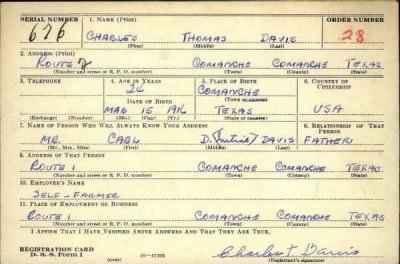 SERIAL NUMBER 1. NAME (Print) ORDER NUMBER
676 CHARLES THOMAS DAVIS 28
(First) (Middle) (Last)
2. ADDRESS (Print)
ROUTE 2 COMANCHE COMANCHE TEXAS
(Number and street or R. F. D. number) (Town) (County) (State)
3. TELEPHONE 4. AGE IN YEARS 5. PLACE OF BIRTH 6. COUNTRY OF CITIZENSHIP
24 COMANCHE
DATE OF BIRTH (Town or county)
MAR 15 1916 TEXAS USA
(Exchange) (Number) (Mo.) (Day) (Yr.) (State or country)
7. NAME OF PERSON WHO WILL ALWAYS KNOW YOUR ADDRESS 8. RELATIONSHIP OF THAT PERSON
MR. CARL D. DAVIS FATHER
(Mr., Mrs., Miss) (First) (Middle) (Last)
9. ADDRESS OF THAT PERSON
ROUTE 1 COMANCHE COMANCHE TEXAS
(Number and street or R. F. D. number) (Town) (County) (State)
10. EMPLOYER'S NAME
SELF - FARMER
11. PLACE OF EMPLOYMENT OR BUSINESS
ROUTE 1 COMANCHE COMANCHE TEXAS
(Number and street or R. F. D. number) (Town) (County) (State)
I AFFIRM THAT I HAVE VERIFIED ABOVE ANSWERS AND THAT THEY ARE TRUE.
REGISTRATION CARD
D. S. S. FORM 1 (over) Charles T Davis
(Registrant's signature)